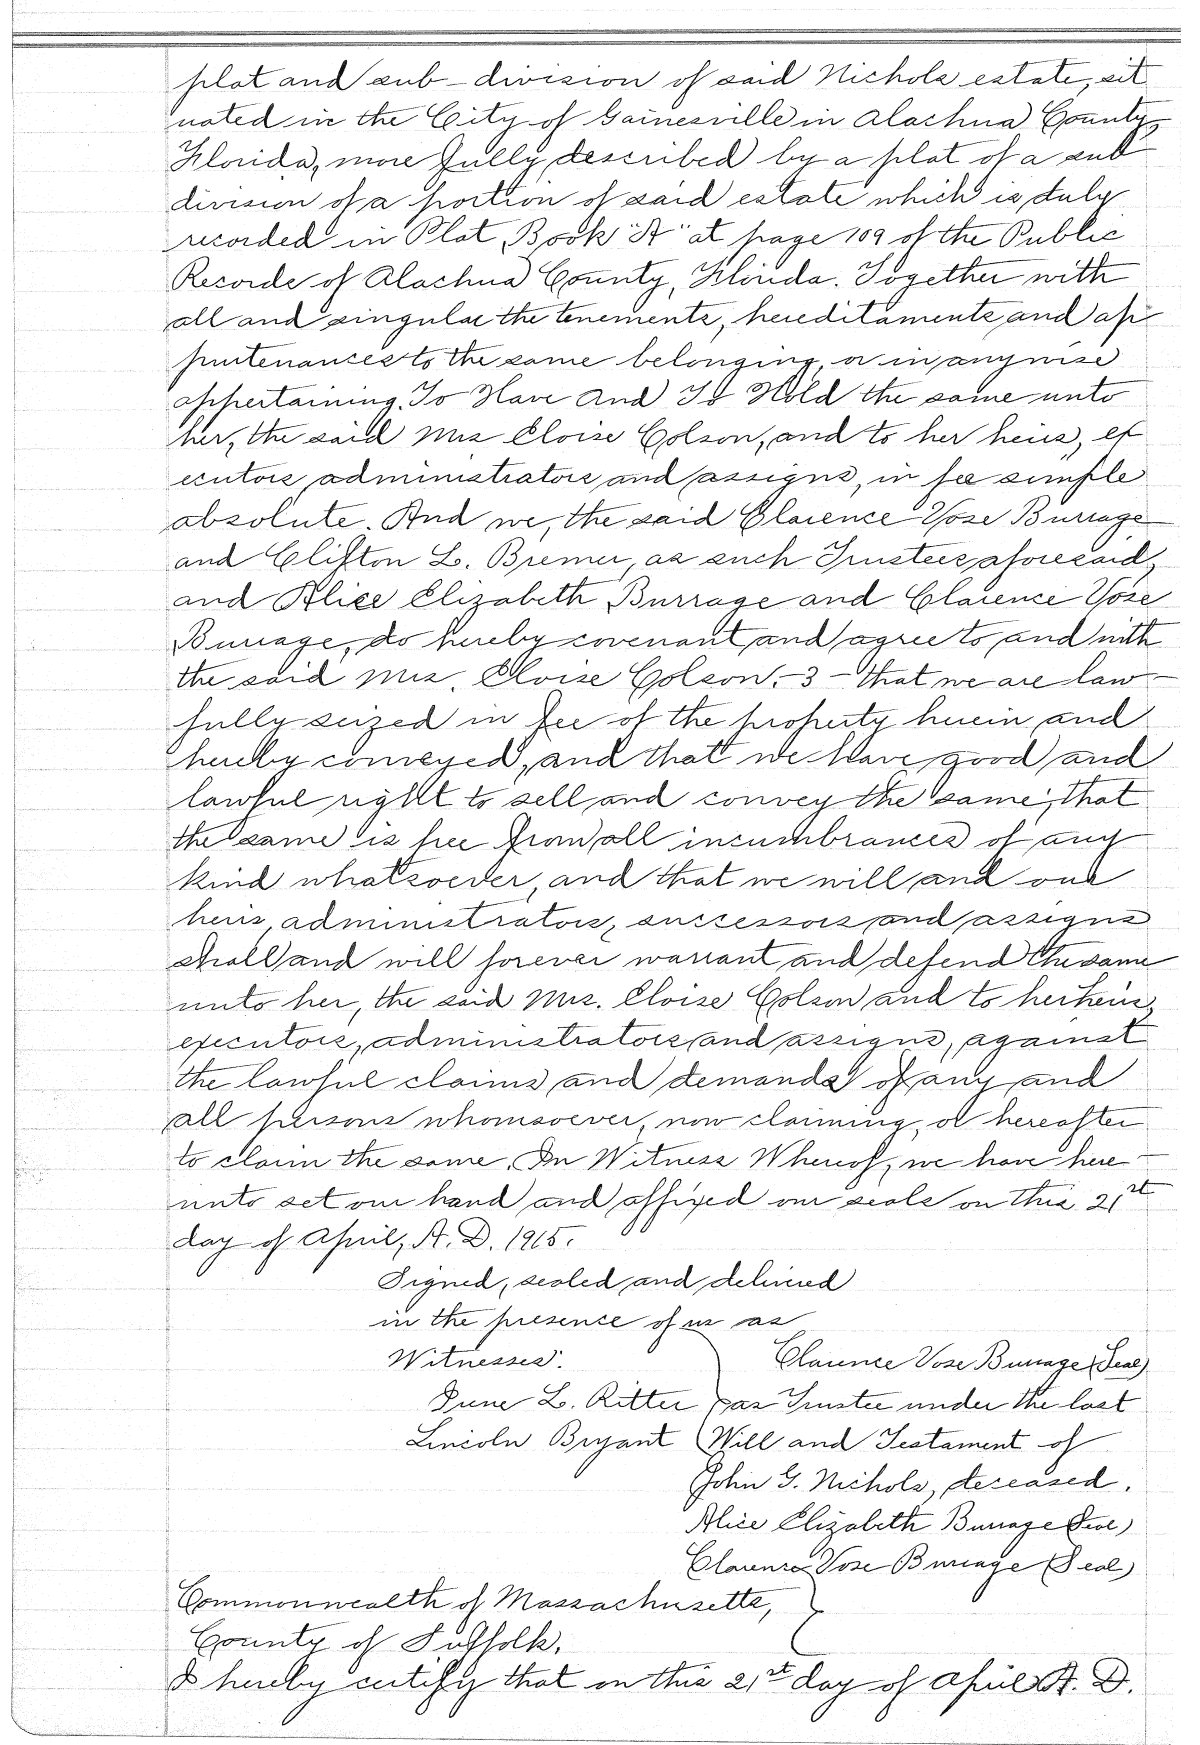 plat and sub-division of said Nichols estate, sit
uated in the City of Gainesville in Alachua County,
Florida, more fully described by a plat of a sub
division of a portion of said estate which is duly
recorded in Plat Book "A" at page 109 of the Public
Records of Alachua County, Florida. Together with
all and singular the tenements, hereditaments and ap-
purtenances to the same belonging, or in anywise
appertaining. To Have And To Hold the same unto
her, the said Mrs Eloise Colson, and to her heirs, ex
ecutors, administrators and assigns, in fee simple
absolute. And we, the said Clarence Vose Burrage
and Clifton L. Bremer, as such Trustees aforesaid,
and Alice Elizabeth Burrage and Clarence Vose
Burrage, do hereby covenant and agree to and with
the said Mrs. Eloise Colson, -3- that we are law-
fully seized in fee of the property herein and
hereby conveyed, and that we have good and
lawful right to sell and convey the same; that
the same is free from all incumbrances of any
kind whatsoever, and that we will and our
heirs, administrators, successors and assigns
shall and will forever warrant and defend the same
unto her, the said Mrs. Eloise Colson and to her heirs,
executors, administrators and assigns, against
the lawful claims and demands of any and
all persons whomsoever, now claiming, or hereafter
to claim the same. In Witness Whereof, we have here-
unto set our hand and affixed our seals on this 21st
day of April, A. D. 1915.
Signed, sealed and delivered
in the presence of us as
Witnesses: Clarence Vose Burrage (Seal)
June L. Ritter as Trustee under the last
Lincoln Bryant Will and Testament of
John G. Nichols, deceased.
Alice Elizabeth Burrage (Seal)
Clarence Vose Burrage (Seal)
Commonwealth of Massachusetts,
County of Suffolk,
I hereby certify that on this 21st day of April A. D.